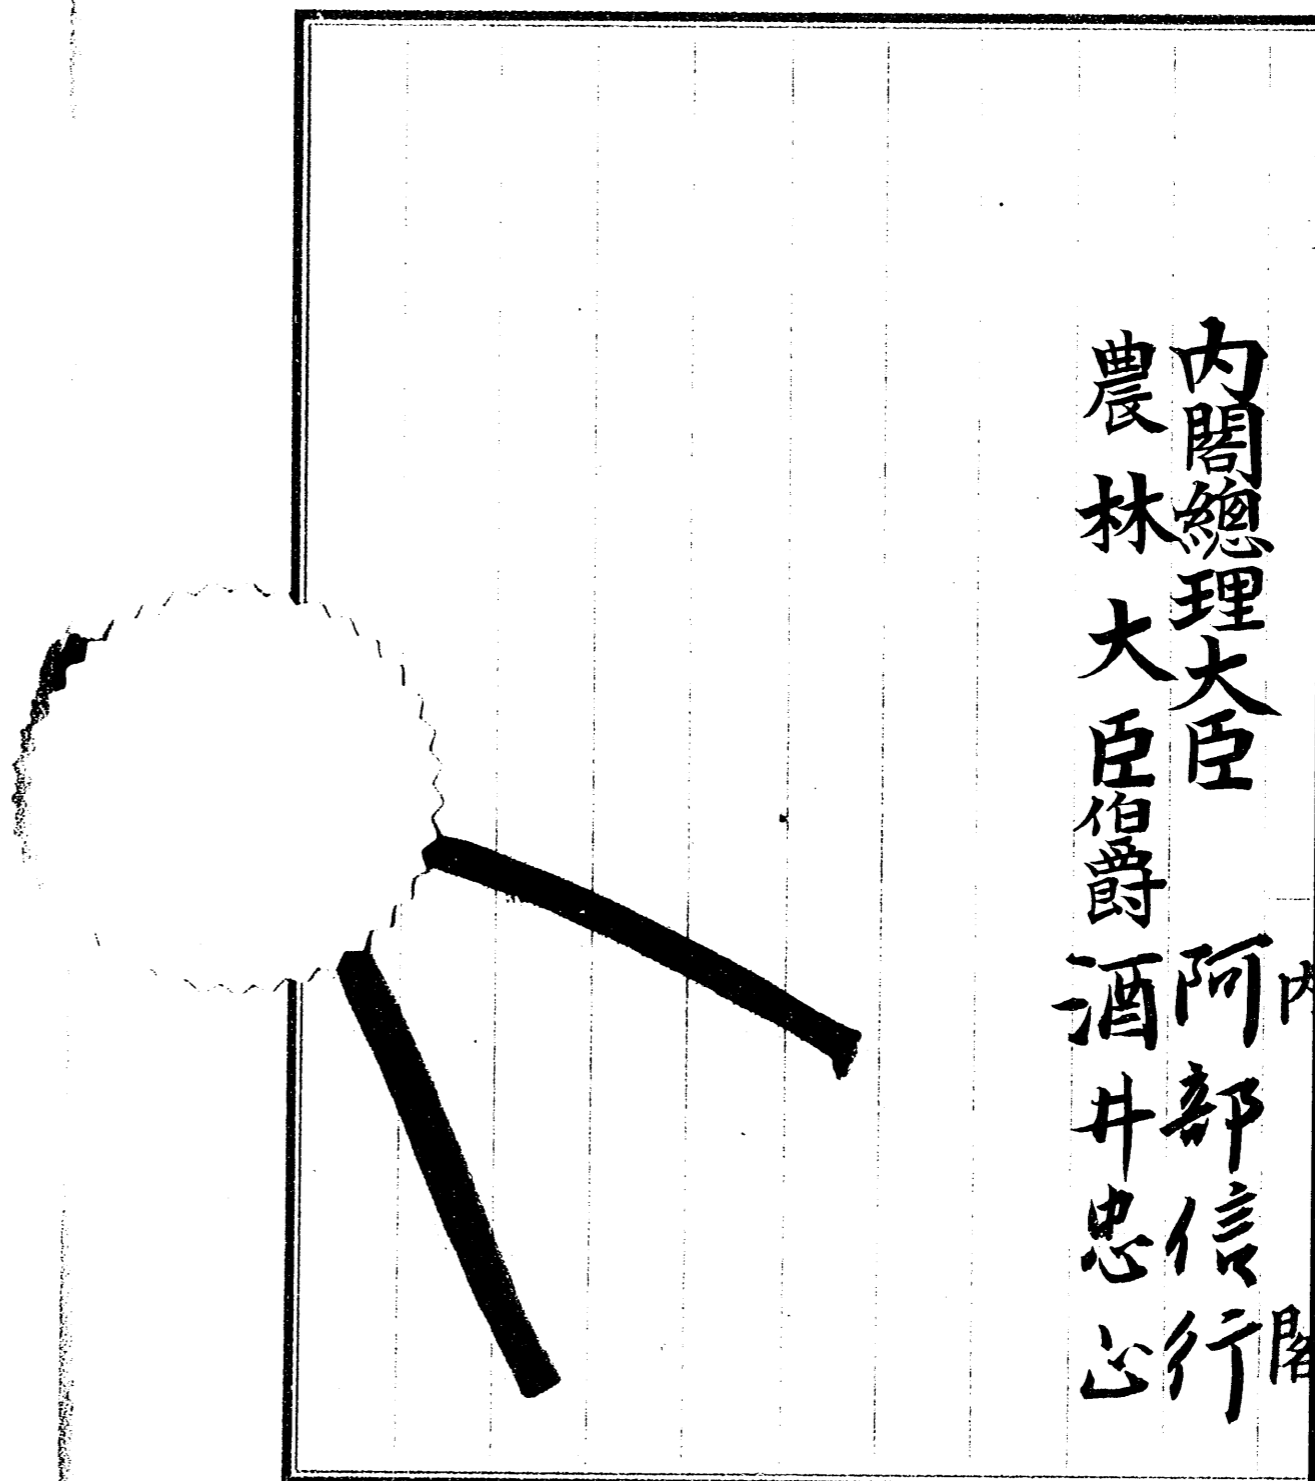 内閣
内閣總理大臣 阿部信行
農林大臣伯爵酒井忠正